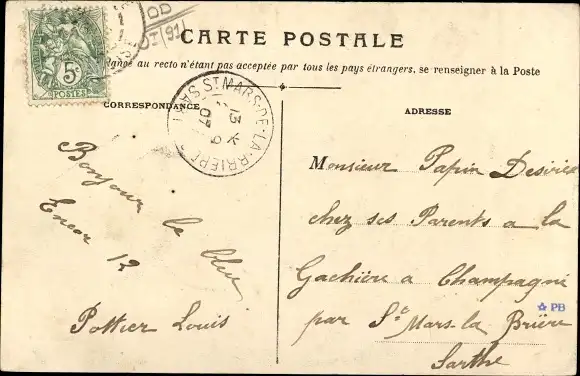 CARTE POSTALE
au recto n'étant pas acceptée par tous les pays étrangers, se renseigner à la Poste
5c
POSTES
ST MARS-DE-LA-BRIÈRE
13
07
CORRESPONDANCE
ADRESSE
Bonjour le bleu
Encor 12
Pottier Louis
Monsieur Papin Desirée
chez ses Parents a la
Gachière a Champagné
par St Mars-la Brière
Sarthe
PB